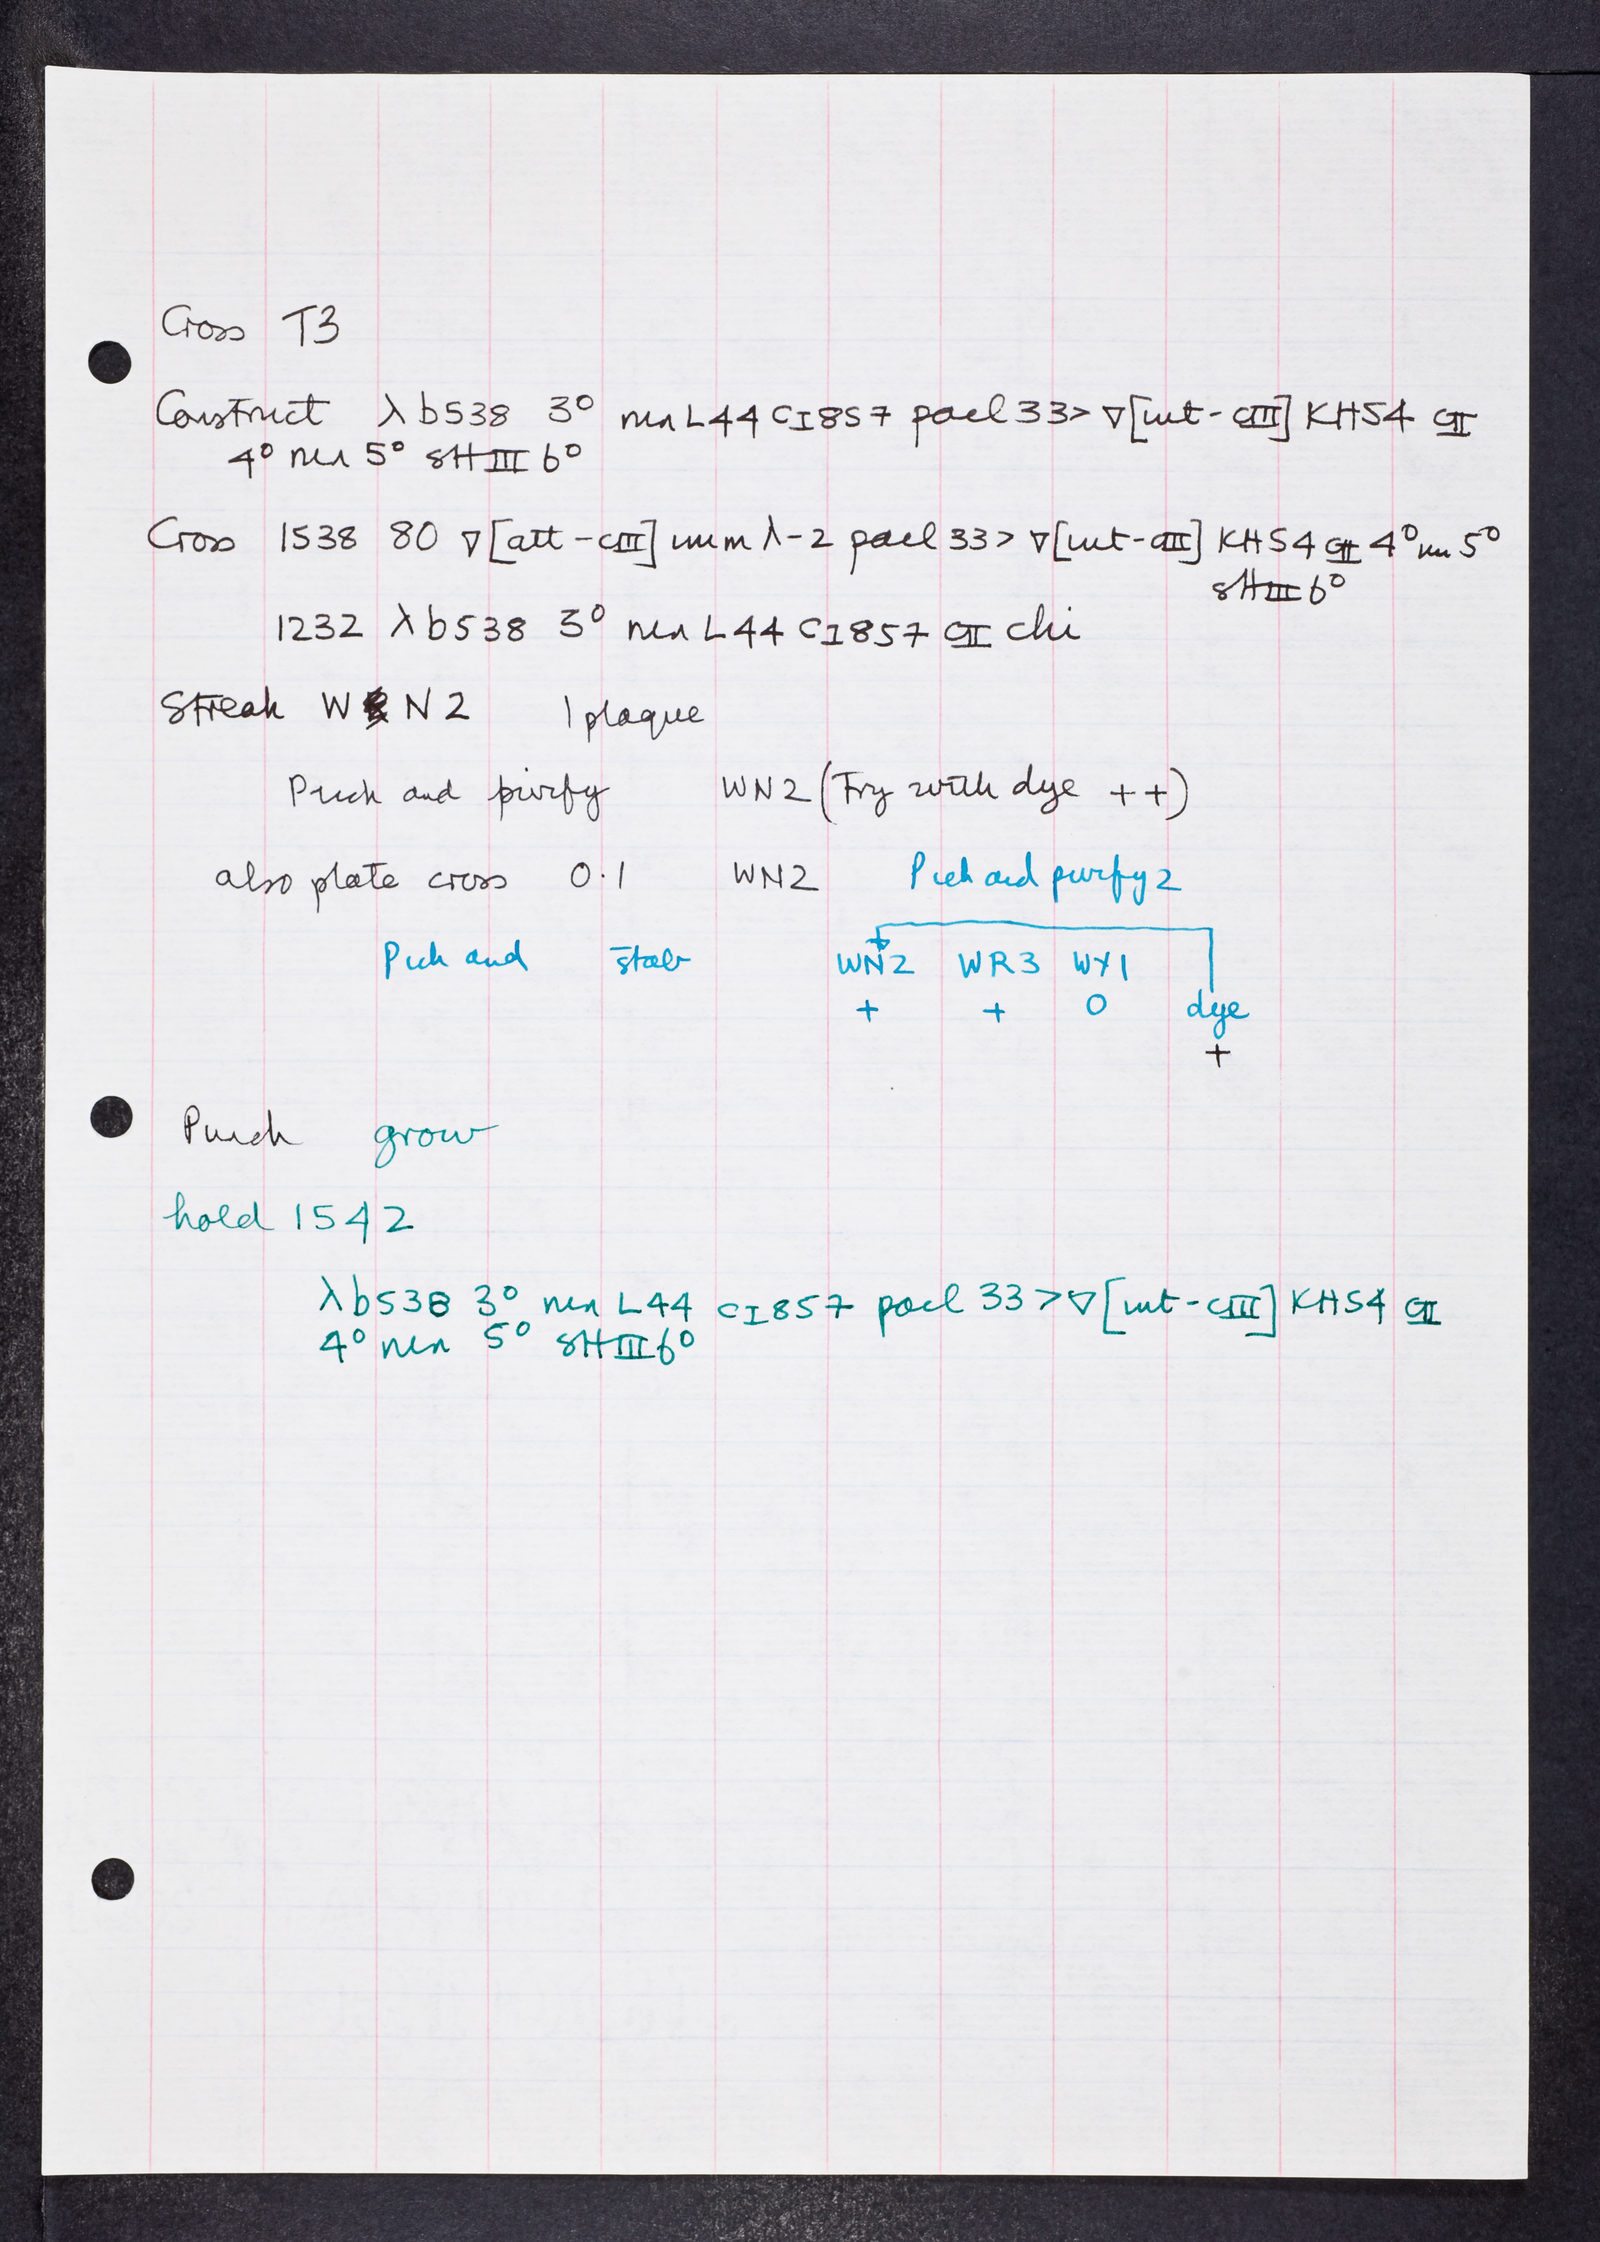 Cross T3
Construct λ b538 3° nin L44 cI857 pael 33> ∇[int-cIII] KH54 cII
4° nin 5° sHIII 6°
Cross 1538 80 ∇[att-cIII] imm λ-2 pael 33> ∇[int-cIII] KH54 cII 4° nin 5°
sHIII 6°
1232 λ b538 3° nin L44 cI857 cII chi
Streak W N2 1 plaque
Pick and purify WN2 (Try with dye ++)
also plate cross 0.1 WN2 Pick and purify 2
Pick and stab WN2 WR3 WY1
+ + 0 dye
+
Pick grow
hold 1542
λ b538 3° nin L44 cI857 pael 33> ∇[int-cIII] KH54 cII
4° nin 5° sHIII 6°